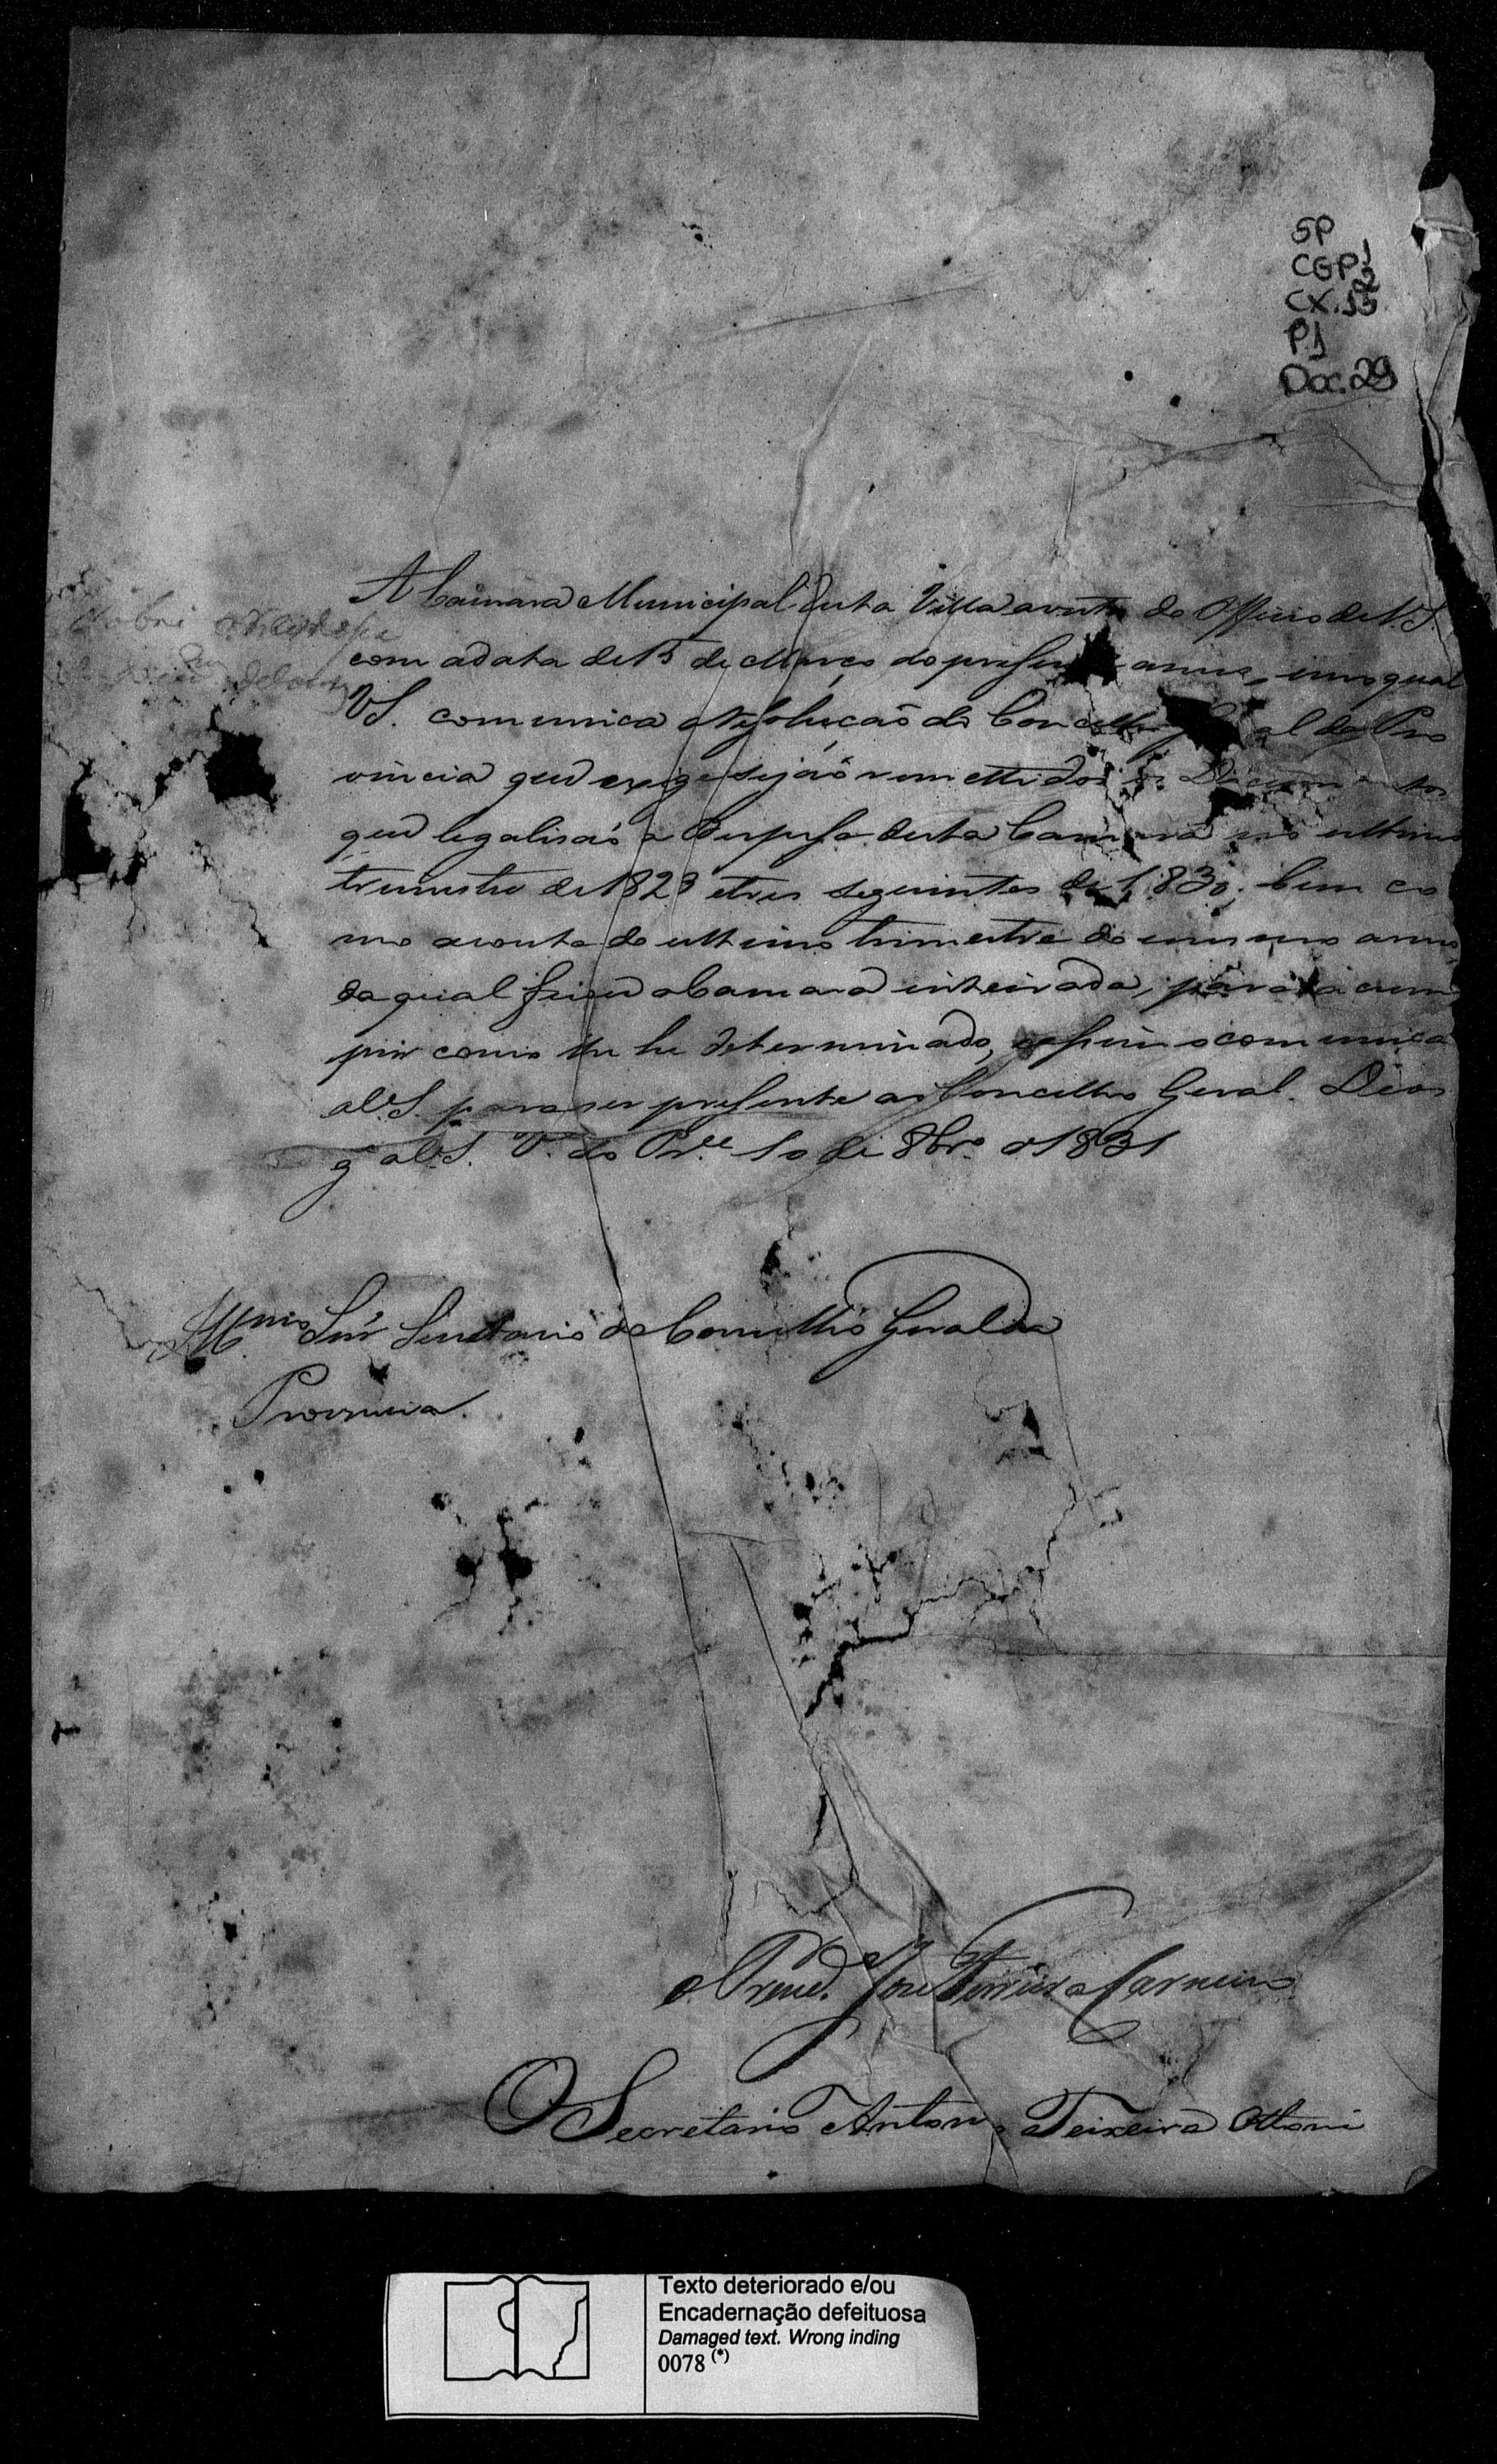 SP
CGP1
CX.
P1
Doc. 29
A Camara Municipal desta Villa do Officio de V.S.
com a data de 15 de Março do presen anno, no qual
VS. comunica a Resolucaõ do Concelho G al da Pro
vincia que exige sejaõ remettidos os Documentos
que legalisaõ a Despesa desta Camara no ultimo
trimestre de 1829 e tres seguintes de 1830; bem co
mo a conta do ultimo trimestre do mesmo anno
da qual ficou a Camara inteirada, para a cum
prir como lhe he determinado, assim o comunica
a V.S. para ser presente ao Concelho Geral. Deos
g.e a V.S. V.a do Pr.e 10 de 8br.o d 1831
Ill.mo Snr Secretario do Concelho Geral da
Provincia.
O Prezid. Jose Ferreira Carneiro
O Secretario Antonio Teixeira Ottoni
Texto deteriorado e/ou
Encadernação defeituosa
Damaged text. Wrong inding
0078 (*)